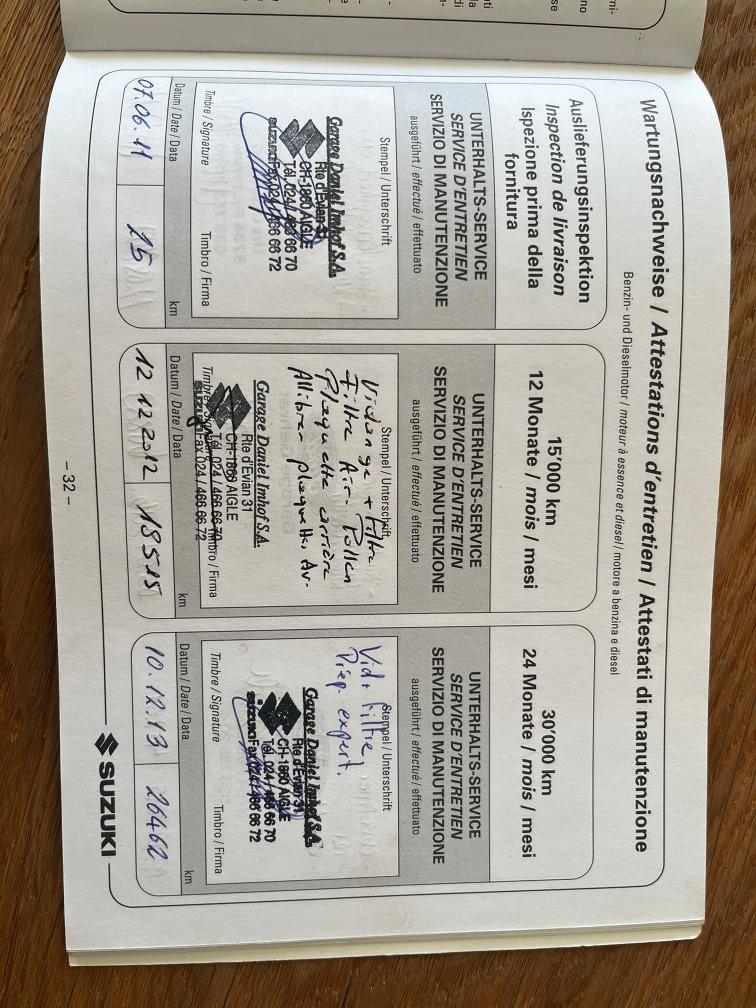 Wartungsnachweise / Attestations d'entretien / Attestati di manutenzione
Benzin- und Dieselmotor / moteur à essence et diesel / motore a benzina e diesel
Auslieferungsinspektion
Inspection de livraison
Ispezione prima della
fornitura
UNTERHALTS-SERVICE
SERVICE D'ENTRETIEN
SERVIZIO DI MANUTENZIONE
ausgeführt / effectué / effettuato
Stempel / Unterschrift
Garage Daniel Imhof S.A.
Rte d'Evian 31
CH-1860 AIGLE
Tél. 024 / 466 66 70
SUZUKI Fax 024 / 466 66 72
Timbre / Signature Timbro / Firma
Datum / Date / Data km
07.06.11 25
15'000 km
12 Monate / mois / mesi
UNTERHALTS-SERVICE
SERVICE D'ENTRETIEN
SERVIZIO DI MANUTENZIONE
ausgeführt / effectué / effettuato
Stempel / Unterschrift
Vidange + Filtre
Filtre Air - Pollen
Plaquette arrière
plaquettes Av-
Garage Daniel Imhof S.A.
Rte d'Evian 31
CH-1860 AIGLE
Tél. 024 / 466 66 70
SUZUKI Fax 024 / 466 66 72
Timbre / Signature Timbro / Firma
Datum / Date / Data km
12 12 2012 18515
30'000 km
24 Monate / mois / mesi
UNTERHALTS-SERVICE
SERVICE D'ENTRETIEN
SERVIZIO DI MANUTENZIONE
ausgeführt / effectué / effettuato
Stempel / Unterschrift
Vid. filtre
Prép. expert.
Garage Daniel Imhof S.A.
Rte d'Evian 31
CH-1860 AIGLE
Tél. 024 / 466 66 70
SUZUKI Fax 024 / 466 66 72
Timbre / Signature Timbro / Firma
Datum / Date / Data km
10.12.13 26462
– 32 –
SUZUKI